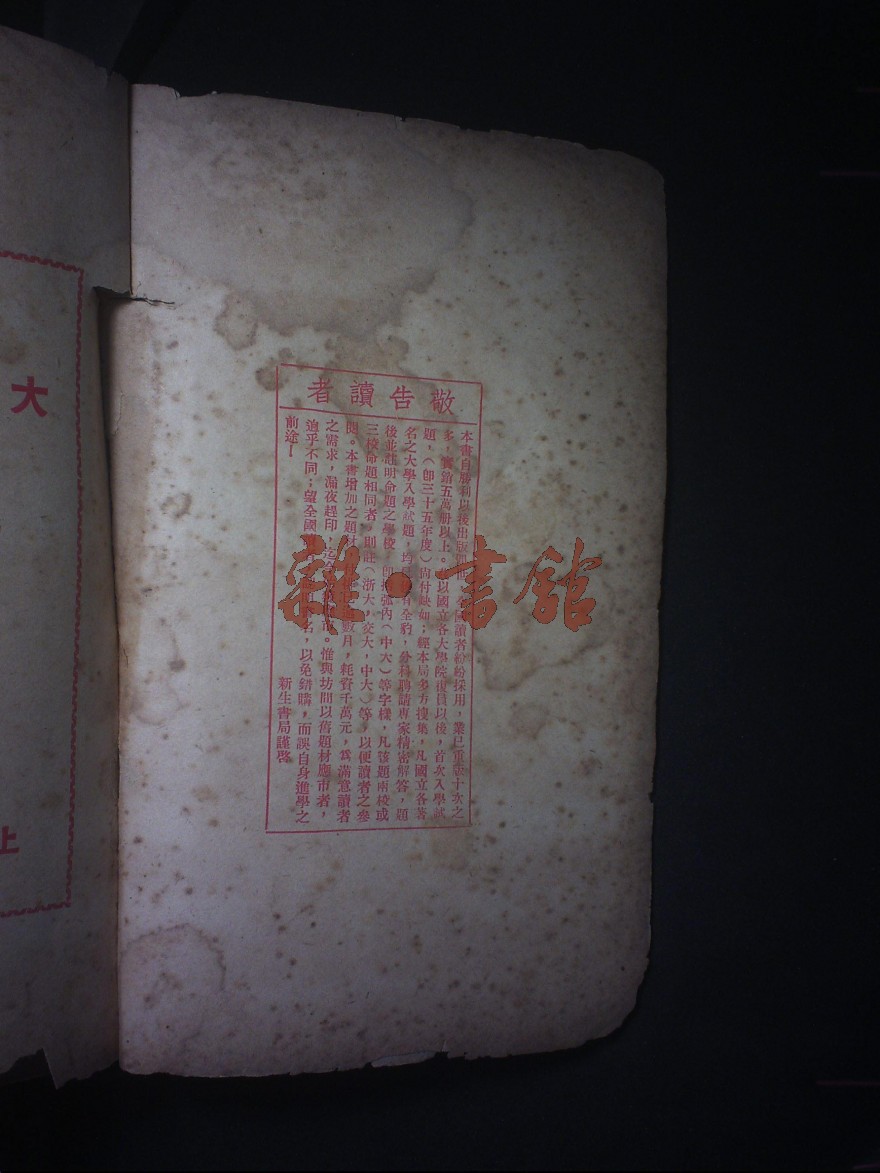 敬告讀者
本書自勝利以後出版問世，全國讀者紛紛採用，業已重版十次之
多，實銷五萬册以上。以國立各大學院復員以後，首次入學試
題，（卽三十五年度）尙付缺如；經本局多方搜集，凡國立各著
名之大學入學試題，均有全豹，分科聘請專家精密解答，題
後並註明命題之學校，卽括弧內（中大）等字樣，凡該題兩校或
三校命題相同者，則註（浙大，交大，中大）等，以便讀者之叄
閱。本書增加之題材，數月，耗資千萬元，爲滿意讀者
之需求，漏夜趕印，市。惟與坊間以舊題材應市者，
逈乎不同；望全國名，以免錯購，而誤自身進學之
前途！
新生書局謹啓
雜·書館
大
上